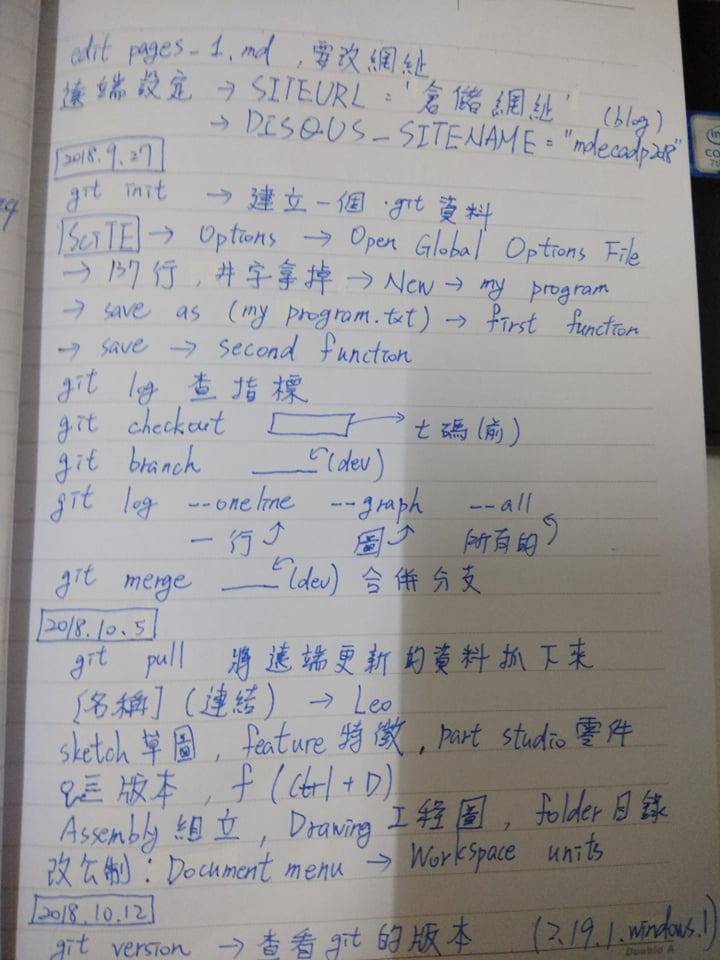 edit pages_1.md , 要改網址
遠端設定 → SITEURL = '倉儲網址'
(blog)
→ DISQUS_SITENAME = "mdecadp2018"
2018.9.27
git init → 建立一個 .git 資料
SciTE → Options → Open Global Options File
→ 137行, 井字拿掉 → New → my program
→ save as (my program.txt) → first function
→ save → second function
git log 查指標
git checkout → 七碼(前)
git branch (dev)
git log --oneline --graph --all
一行 圖 所有的
git merge (dev) 合併分支
2018.10.5
git pull 將遠端更新的資料抓下來
[名稱] (連結) → Leo
sketch 草圖, feature 特徵, part studio 零件
版本, f (Ctrl + D)
Assembly 組立, Drawing 工程圖, folder 目錄
改公制: Document menu → Workspace units
2018.10.12
git version → 查看git的版本 (2.19.1.windows.1)
Double A